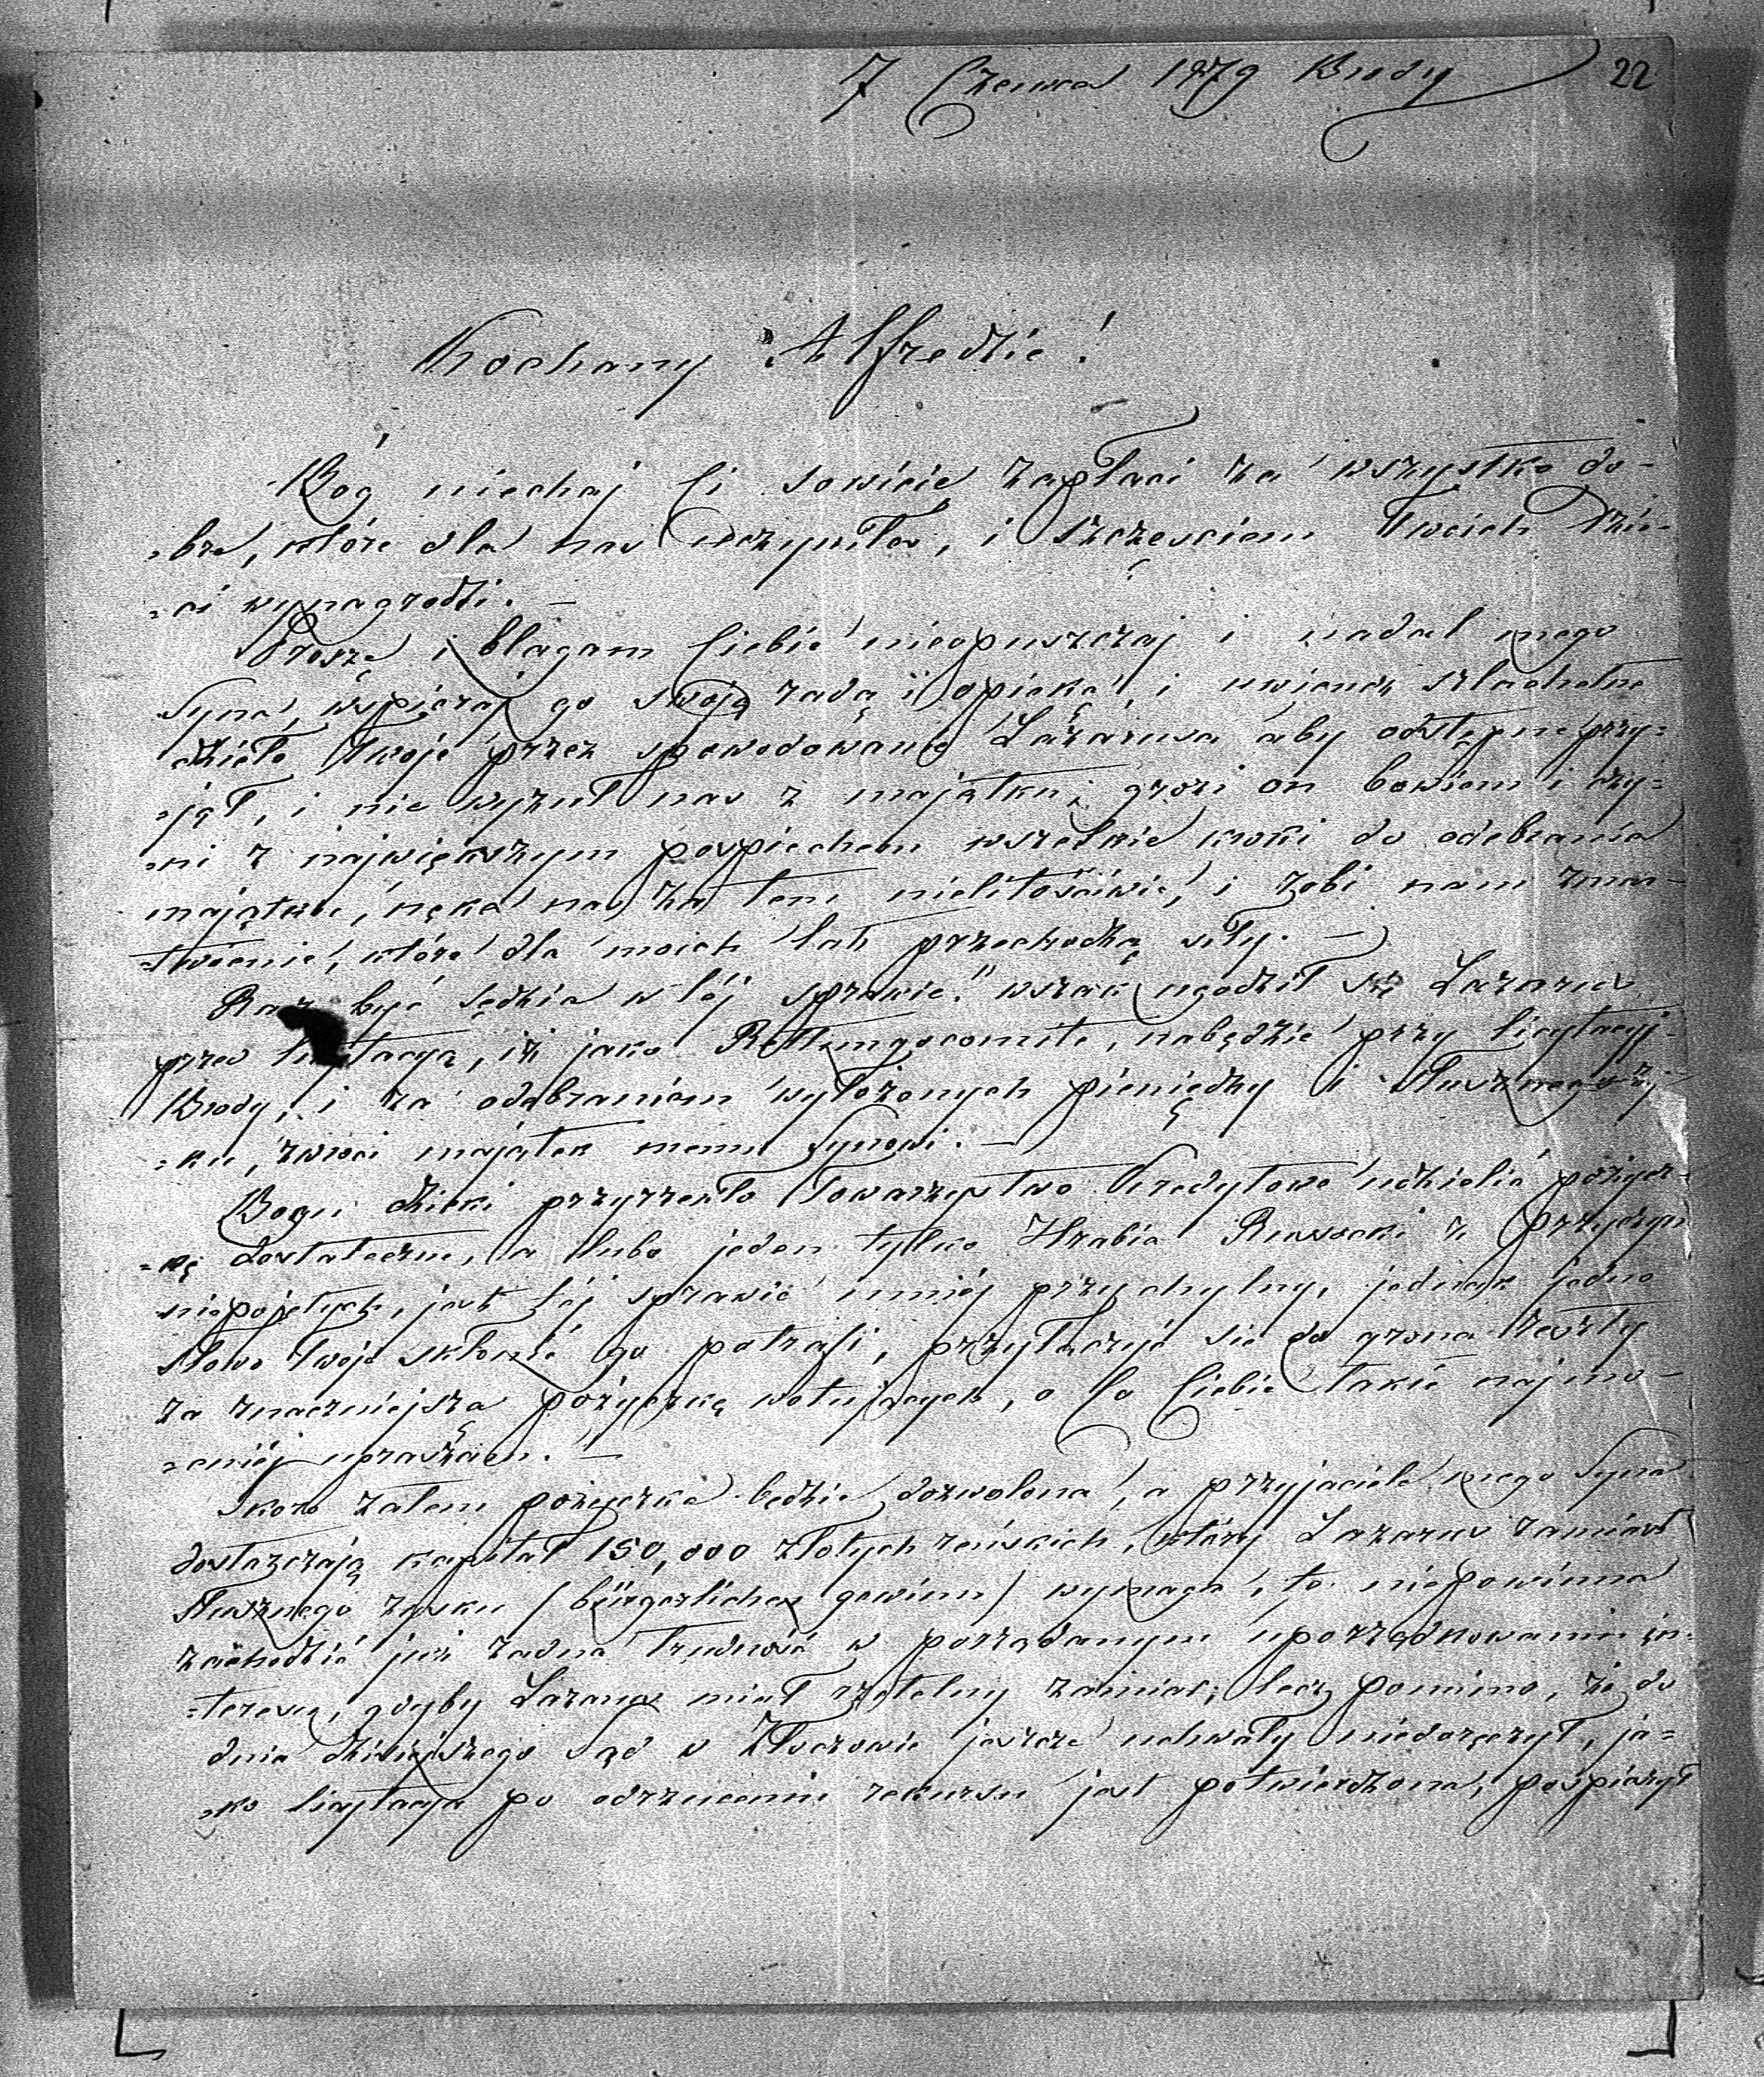 7 Czerwca 1879 Brody 22
Kochany Alfredzie!
Bóg niechaj Ci sowicie zapłaci za wszystko do-
=bre, które dla nas uczyniłeś, i szczęściem Twoich Dzie-
=ci wynagrodzi. —
Proszę i błagam Ciebie nieopuszczaj i nadal mego
Syna, wspieraj go swoją radą i opieką, i uwieńcz szlachetne
dzieło Twoje przez spowodowanie Lazarusa aby odstępne przy=
=jął, i nie wyzuł nas z majątku; grozi on bowiem i czy=
=ni z największym pospiechem wszelkie kroki do odebrania
majątku, nęka nas zatem nielitościwie, i robi nam zmar-
=twienie, które dla moich lat przechodzą siły. —
Racz być sędzią w téj sprawie! wszak ugodził się Lazarus
przed licytacyą, iż jako Rettungscomité, nabędzie przy licytacyi
Brody, i za odebraniem wyłożonych pieniędzy i słusznego zy-
=sku, zwróci majątek memu Synowi. —
Bogu dzięki przyrzekło Towarzystwo Kredytowe udzielić pożycz-
=kę dostateczną, a lubo jeden tylko Hrabia Russocki z przyczyn
niepojętych, jest téj sprawie mniéj przychylny, jednak jedno
słowo Twoje skłonić go potrafi, przyłączyć się do grona reszty
za znaczniejszą pożyczką wotujących, o co Ciebie także najmo-
=cniéj upraszam. —
Skoro zatem pożyczka będzie dozwolona, a przyjaciele mego Syna
dostarczają kapitał 150,000 złotych reńskich, który Lazarus zamiast
słusznego zysku (bürgerlicher gewinn) wymaga, to niepowinna
zachodzić już żadna trudność w porządanym uporządkowaniu in-
=teresu, gdyby Lazarus miał rzetelny zamiar; lecz pomimo, że do
dnia dzisiejszego Sąd w Złoczowie jeszcze uchwały niedoręczył, ja=
=ko licytacya po odrzuceniu rekursu jest potwierdzona, pospieszył